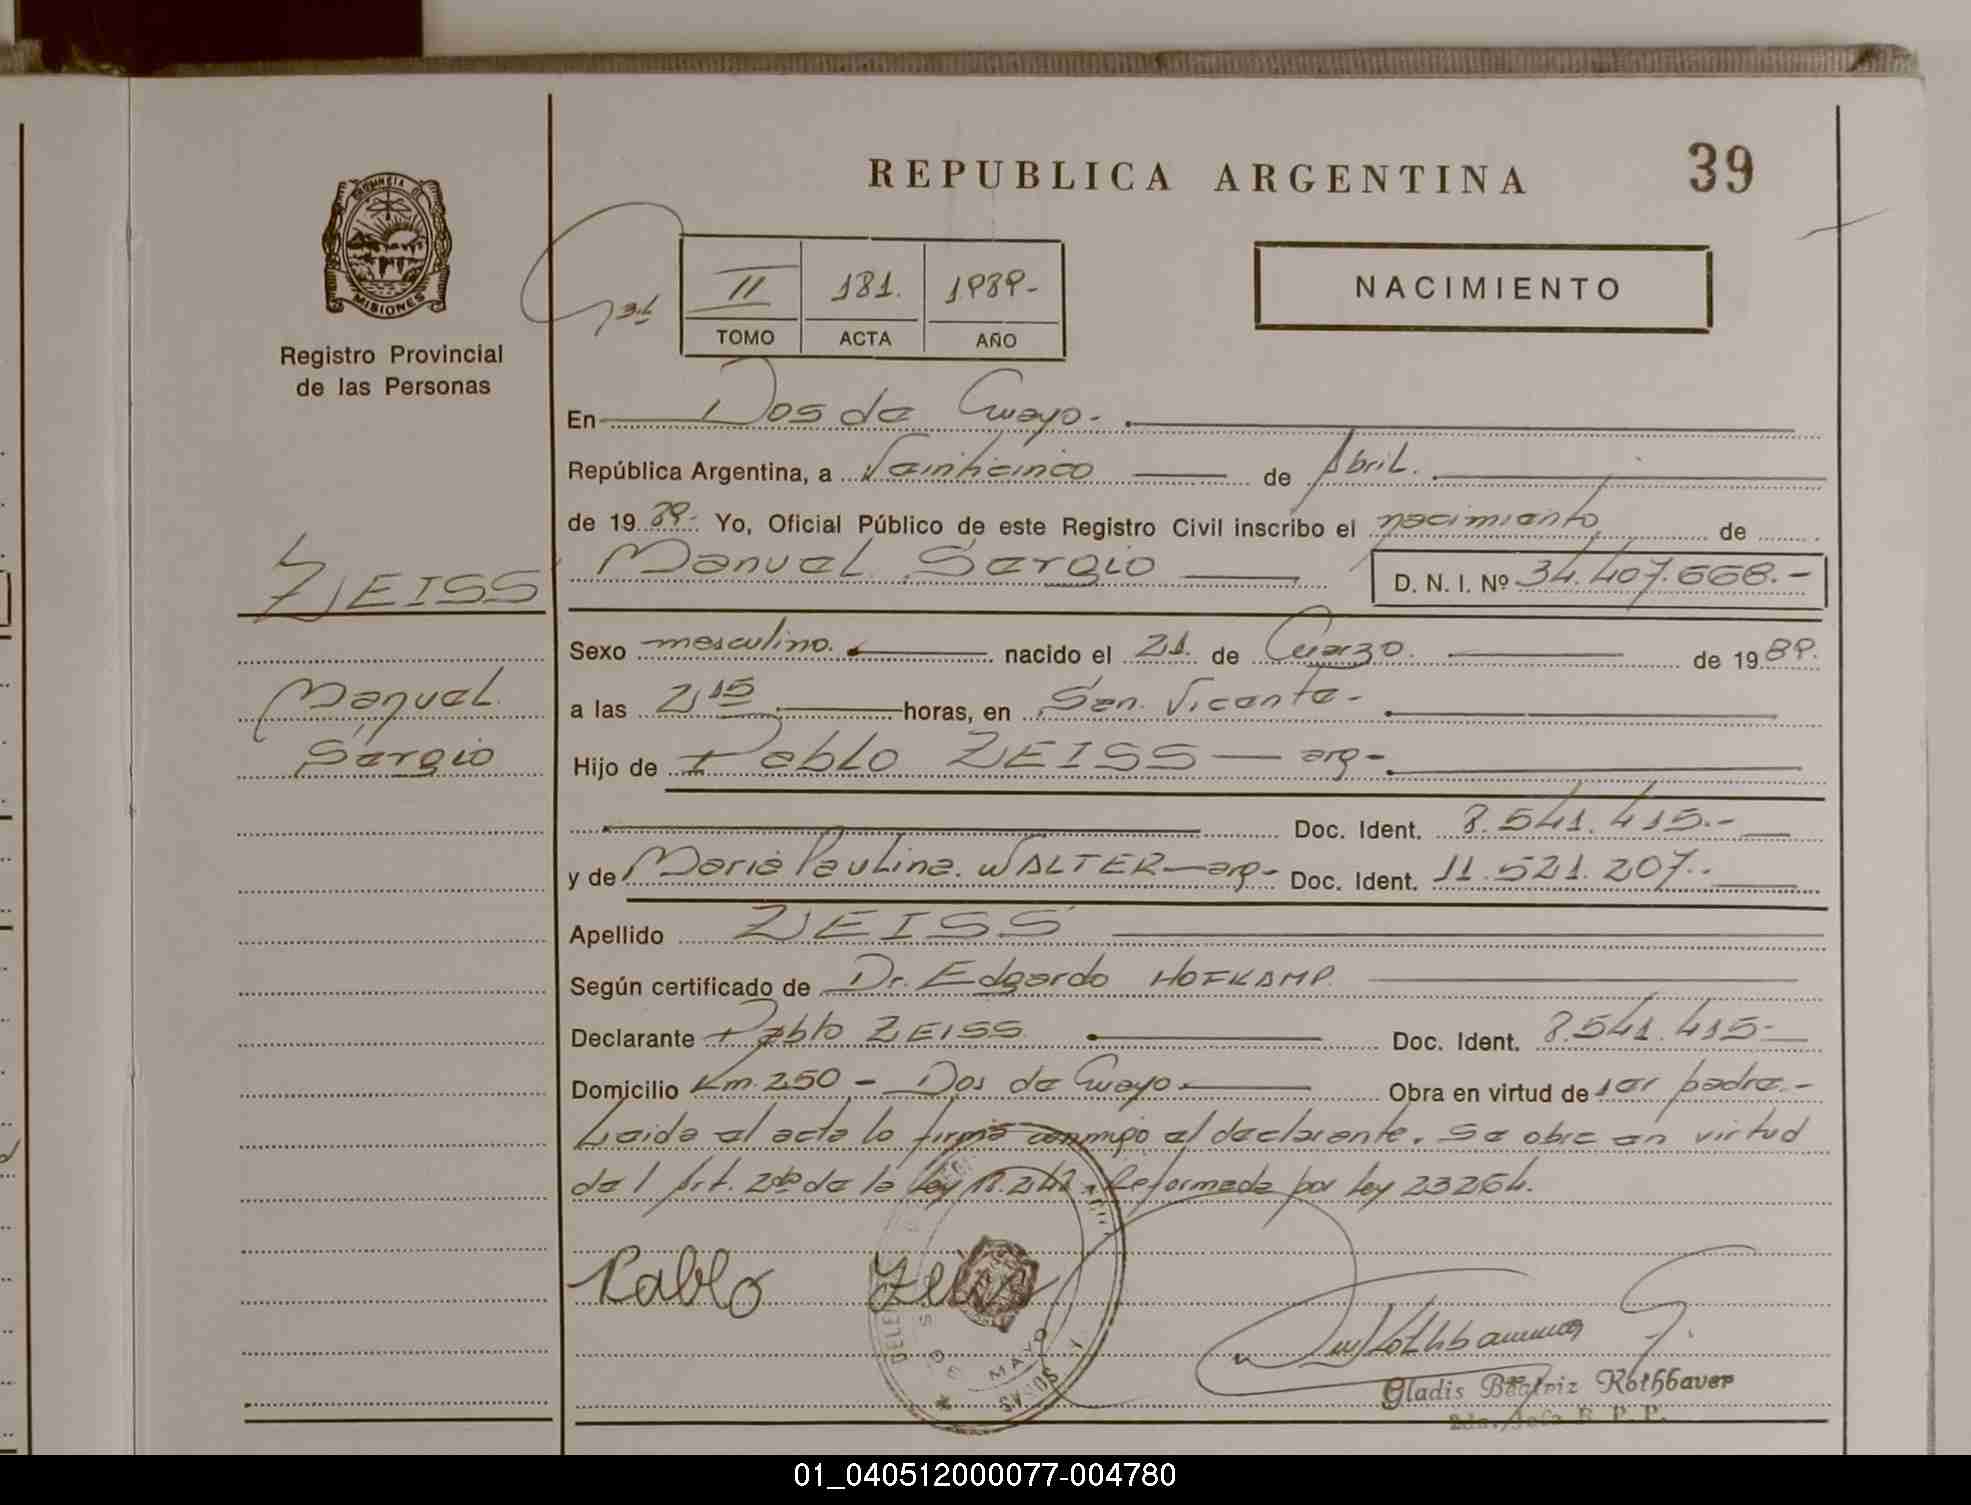 REPUBLICA ARGENTINA
39
PROVINCIA DE
MISIONES
Registro Provincial
de las Personas
II 181. 1989-
TOMO ACTA AÑO
NACIMIENTO
En Dos de Mayo-
República Argentina, a Veinticinco de Abril.
de 19 89- Yo, Oficial Público de este Registro Civil inscribo el nacimiento de
ZEISS
Manuel Sergio
Manuel Sergio D. N. I. Nº 34.407.668.-
Sexo masculino. nacido el 21. de Marzo. de 19 89.
a las 2,15 horas, en San Vicente-
Hijo de Pablo ZEISS — arg-
Doc. Ident. 8.541.415.-
y de Maria Paulina WALTER — arg- Doc. Ident. 11.521.207.-
Apellido ZEISS
Según certificado de Dr. Edgardo HOFKAMP
Declarante Pablo ZEISS Doc. Ident. 8.541.415-
Domicilio Km. 250 - Dos de Mayo- Obra en virtud de ser padre.-
Leida el acta lo firma conmigo el declarante. Se obra en virtud
del Art. 2do de la Ley 18.248 Reformada por Ley 23264.
Pablo Zeiss
DE MAYO
Rothbauer G.
Gladis Beatriz Rothbauer
2da. Jefe R. P. P.
01_040512000077-004780